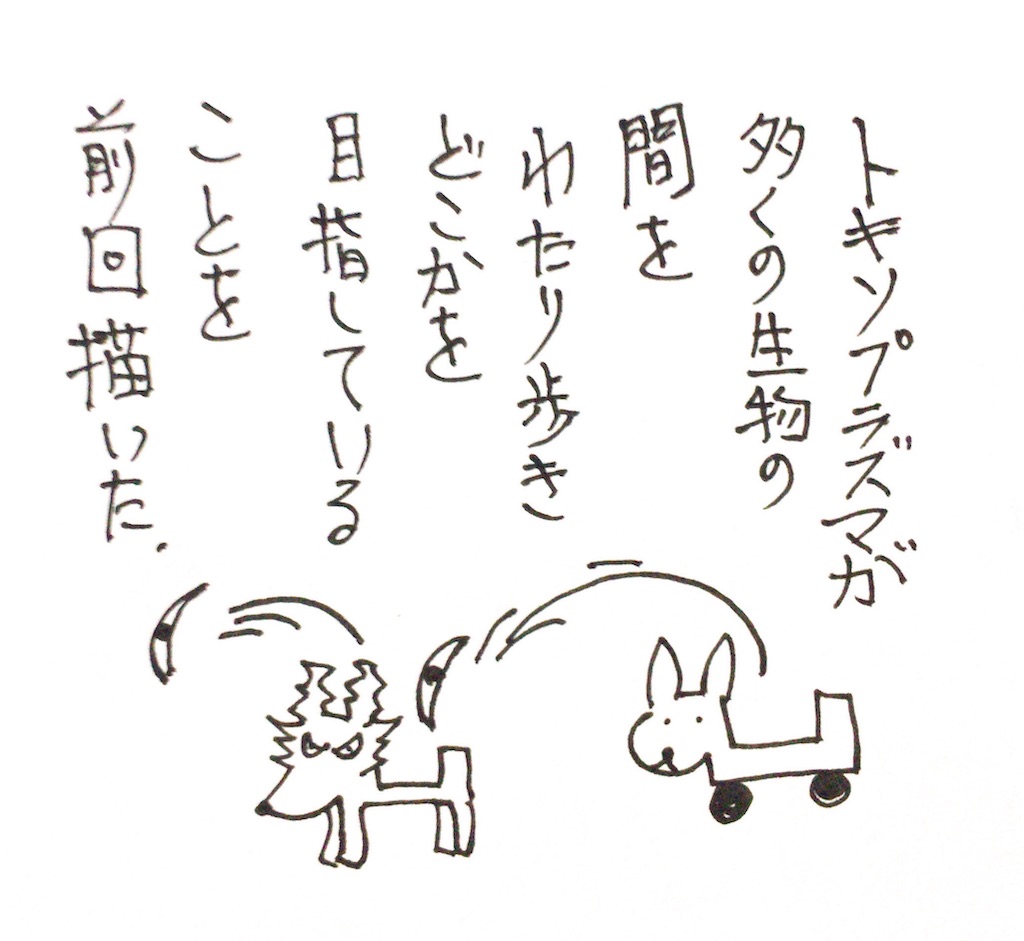 トキソプラズマが
多くの生物の
間を
わたり歩き
どこかを
目指している
ことを
前回描いた.